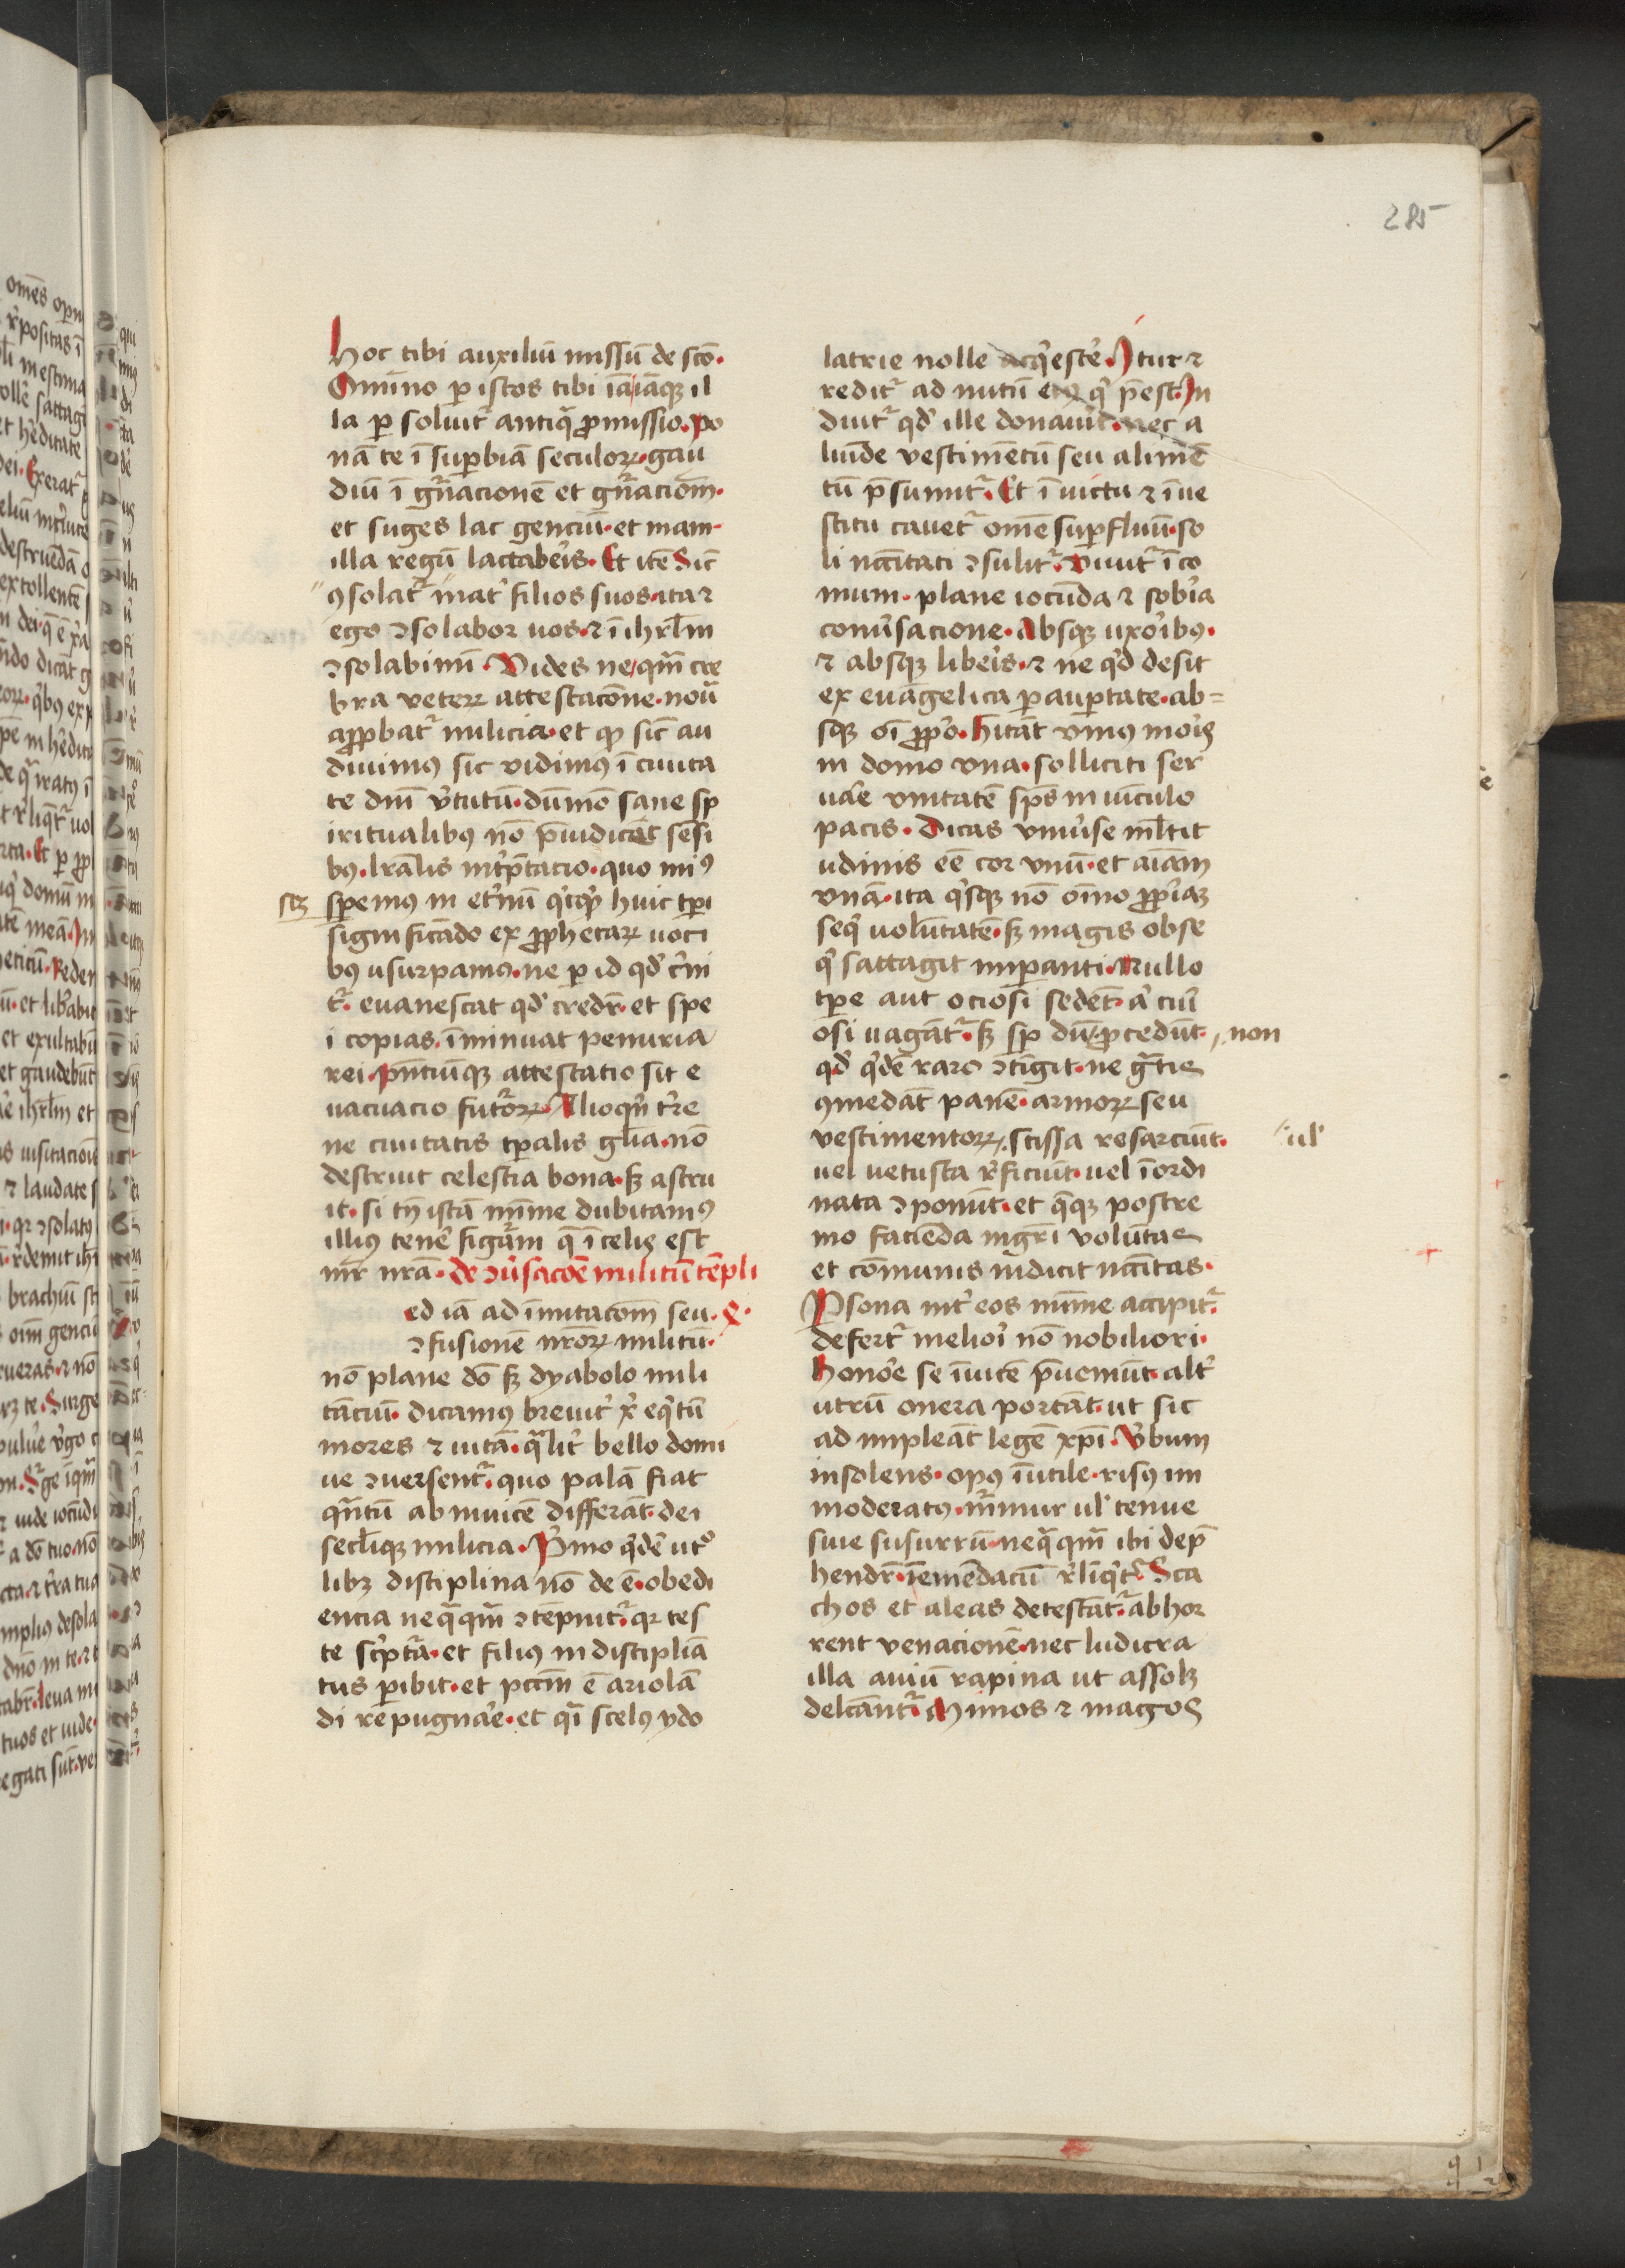 285
hoc tibi auxiliū missū de sc̄o·
Om̄ino ꝑ istos tibi iā iāqꝫ il
la ꝑ soluit᷑ antiq̄ ꝓmissio· po
nā te ī suꝑbiā seculoꝝ· gau
diū ī gn̄acionē et gn̄acioēm·
et suges lac genciū· et mam
illa regū lactab̾is· Et itē Sic̄
ꝯsolat᷑ mat̾ filios suos· ita ⁊
ego ꝯsolabor uos· ⁊ ī ihrl̄m
ꝯsolabimī· Vides ne qm̄ cre
bra veteꝝ attestacōne· noua
aꝓbat᷑ milicia· et qꝫ sic̄ au
diuimꝰ sic vidimꝰ ī ciuita
te dn̄i v̾tutū· dūmō sane sp
iritualibꝰ nō p̄iudicāt sēsi
bꝰ· lr̄alis int̾p̄tacio· quo miꝰ
scꝫ
speemus in et̾nū q̾cqͥd huic tꝑi
significādo ex ꝓphetaꝝ uoci
bꝰ usurpamꝰ· ne ꝑ id qd̾ c̾ni
t᷑· euanescat qd̾ credr̄· et spe
i copias· īminuat penuria
rei· pn̄ciūqꝫ attestatio sit e
uacuacio fut᷑oꝝ· Alioqͥn t̾re
ne ciuitatis tꝑalis gl̄ia· nō
destruit celestia bona· sꝫ astru
it· si tn̄ istā mīme dubitamꝰ
illiꝰ tene̾ figurā q̄ ī celis est
mr̄ nr̄a· de ꝯu̾sacōe militū tēpli
ed iā ad īmitacōm̄ seu· X·
ꝯfusionē nr̄oꝝ militū·
nō plane dō sꝫ dyabolo mili
tāciū· dicamꝰ breuit̾ xͥ eqͥtū
mores ⁊ uitā· qᷓlit̾ bello domi
ue ꝯuersent᷑· quo palā fiat
qᷓntū ab inuicē differāt· dei
secl̄iqꝫ milicia· Pͥmo qͥdē utͦ
libꝫ disciplina nō de ē· obedi
encia neqᷓqm̄ ꝯtēpnit᷑· qꝛ tes
te sc̾ptᷓa· et filiꝰ indiscipliā
tus ꝑibit· et pccm̄ ē ariolā
di repugna̾e· et qᷓi scelꝰ ydo
latrie nolle acq̾esce̾· Itur ⁊
redit᷑ ad nutū eiꝰ qͥ p̄est· In
duit᷑ qd̾ ille donauit· nec a
liūde vestimētū seu alimē
tū p̄sumit᷑· Et ī uictu ⁊ ī ue
stitu cauet᷑ omē suꝑfluū· so
li nc̄citati ꝯsulit᷑· viuit᷑ ī co
mum· plane iocūda ⁊ sob̾a
conu̾sacione· Absqꝫ uxo̾ibꝰ·
⁊ absqꝫ libe̾is· ⁊ ne qͥd desit
ex euāgelica ꝑ auꝑtate· ab=
sqꝫ oī ꝓpͥo· hitāt vniꝰ mo̾is
in domo vna· solliciti ser
ua̾e vnitatē sp̄s in uīculo
pacis· Dicas vniu̾se ml̄tit
udinis ēe cor vnū· et aīam
vnā· ita qͥsqꝫ nō om̄ino ꝓpͥaꝫ
seqͥ volūtatē· sꝫ magis obse
qͥ sattagit imꝑanti· Nullo
tꝑe aut ociosi sedēt· a̾ curi
osi uagāt᷑· sꝫ sp̄ dū ꝓcedūt·
non
qd̾ qͥdē raro ꝯtīgit· ne gᷓtis
ꝯmedāt panē· armoꝝ seu
vestimentoꝝ· scissa resarciūt·
ul̾
uel uetusta r̾ficiūt· uel īordi
nata ꝯponūt· et qᷓqꝫ postre
mo faciēda mgr̄i volūtas
et cōmunis indicit nc̄citas·
Psona int̾ eos mīme accipit᷑·
defert᷑ melio̾i nō nobiliori·
Hono̾e se īuicē p̄ueniūt· alt̾
utrū onera portāt· ut sic
ad impleāt legē xp̄i· V̾bum
insolens· opꝰ īutile· risꝰ im
moderatꝰ· m̄mur ul̾ tenue
siue susurrū· neqᷓqm̄ ibi dep̄
hendr̄· iēmēdacū r̾līqͥt᷑· Sca
chos et aleas detestāt᷑· abhor
rent venacionē· nec ludicra
illa auiū rapina ut assolꝫ
delcānt᷑· Mimos ⁊ magos